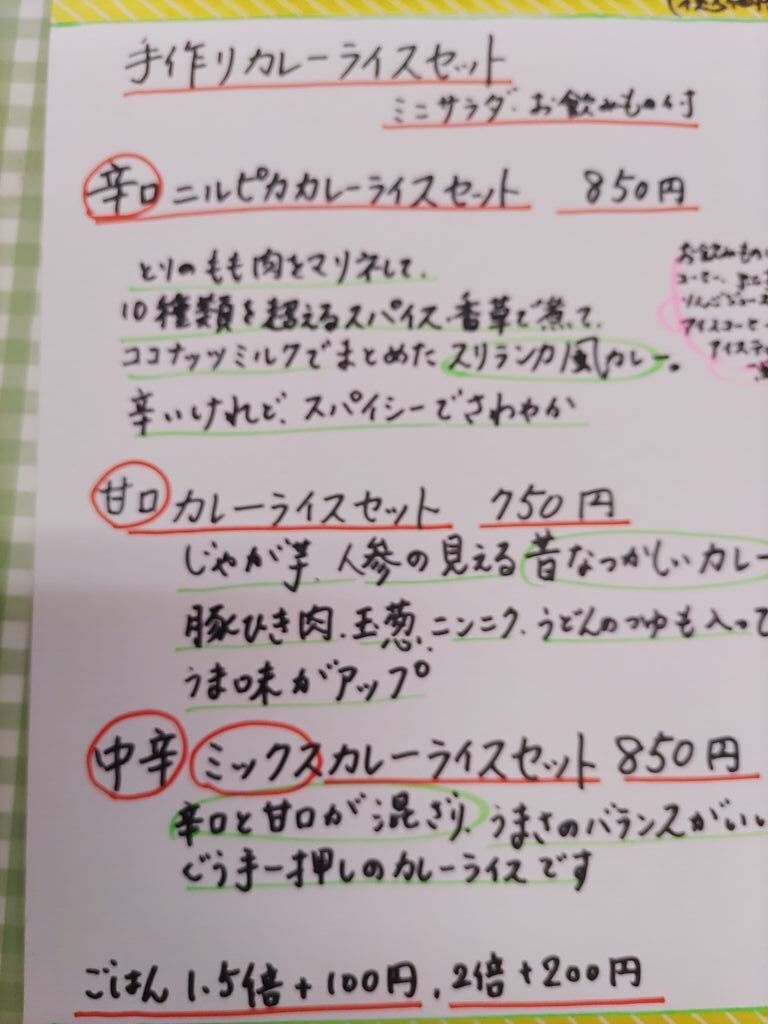 手作りカレーライスセット
ミニサラダ・お飲みもの付
辛口 ニルピカカレーライスセット 850円
とりのもも肉をマリネして、
10種類を超えるスパイス、香草で煮て、
ココナッツミルクでまとめたスリランカ風カレー。
辛いけれど、スパイシーでさわやか
お飲みもの
コーヒー、
りんごジュース
アイスコーヒー
アイスティ
甘口 カレーライスセット 750円
じゃが芋、人参の見える昔なつかしいカレー
豚ひき肉、玉葱、ニンニク、うどんのつゆも入って
うま味がアップ
中辛 ミックスカレーライスセット 850円
辛口と甘口が混ざり、うまさのバランスがいい
ぐう手一押しのカレーライスです
ごはん 1.5倍+100円、2倍+200円